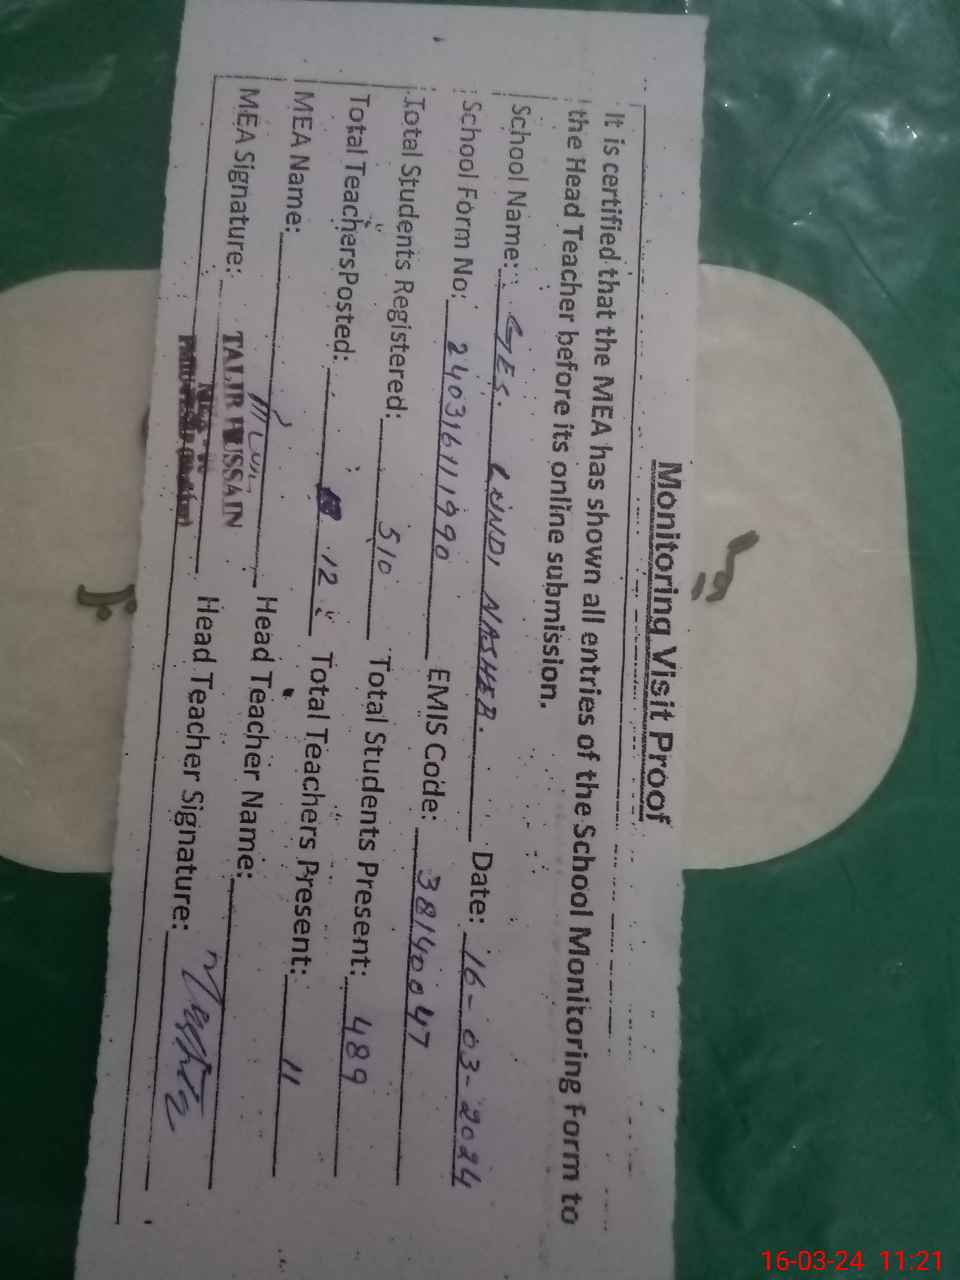 Monitoring Visit Proof
It is certified that the MEA has shown all entries of the School Monitoring Form to
the Head Teacher before its online submission.
School Name: GES. LUNDI NASHEB. Date: 16-03-2024
School Form No: 2403161111990 EMIS Code: 38140047
Total Students Registered: 510 Total Students Present: 489
Total TeachersPosted: 12 Total Teachers Present: 11
MEA Name: Head Teacher Name:
MEA Signature: Head Teacher Signature:
TALIB HUSSAIN
16-03-24 11:21